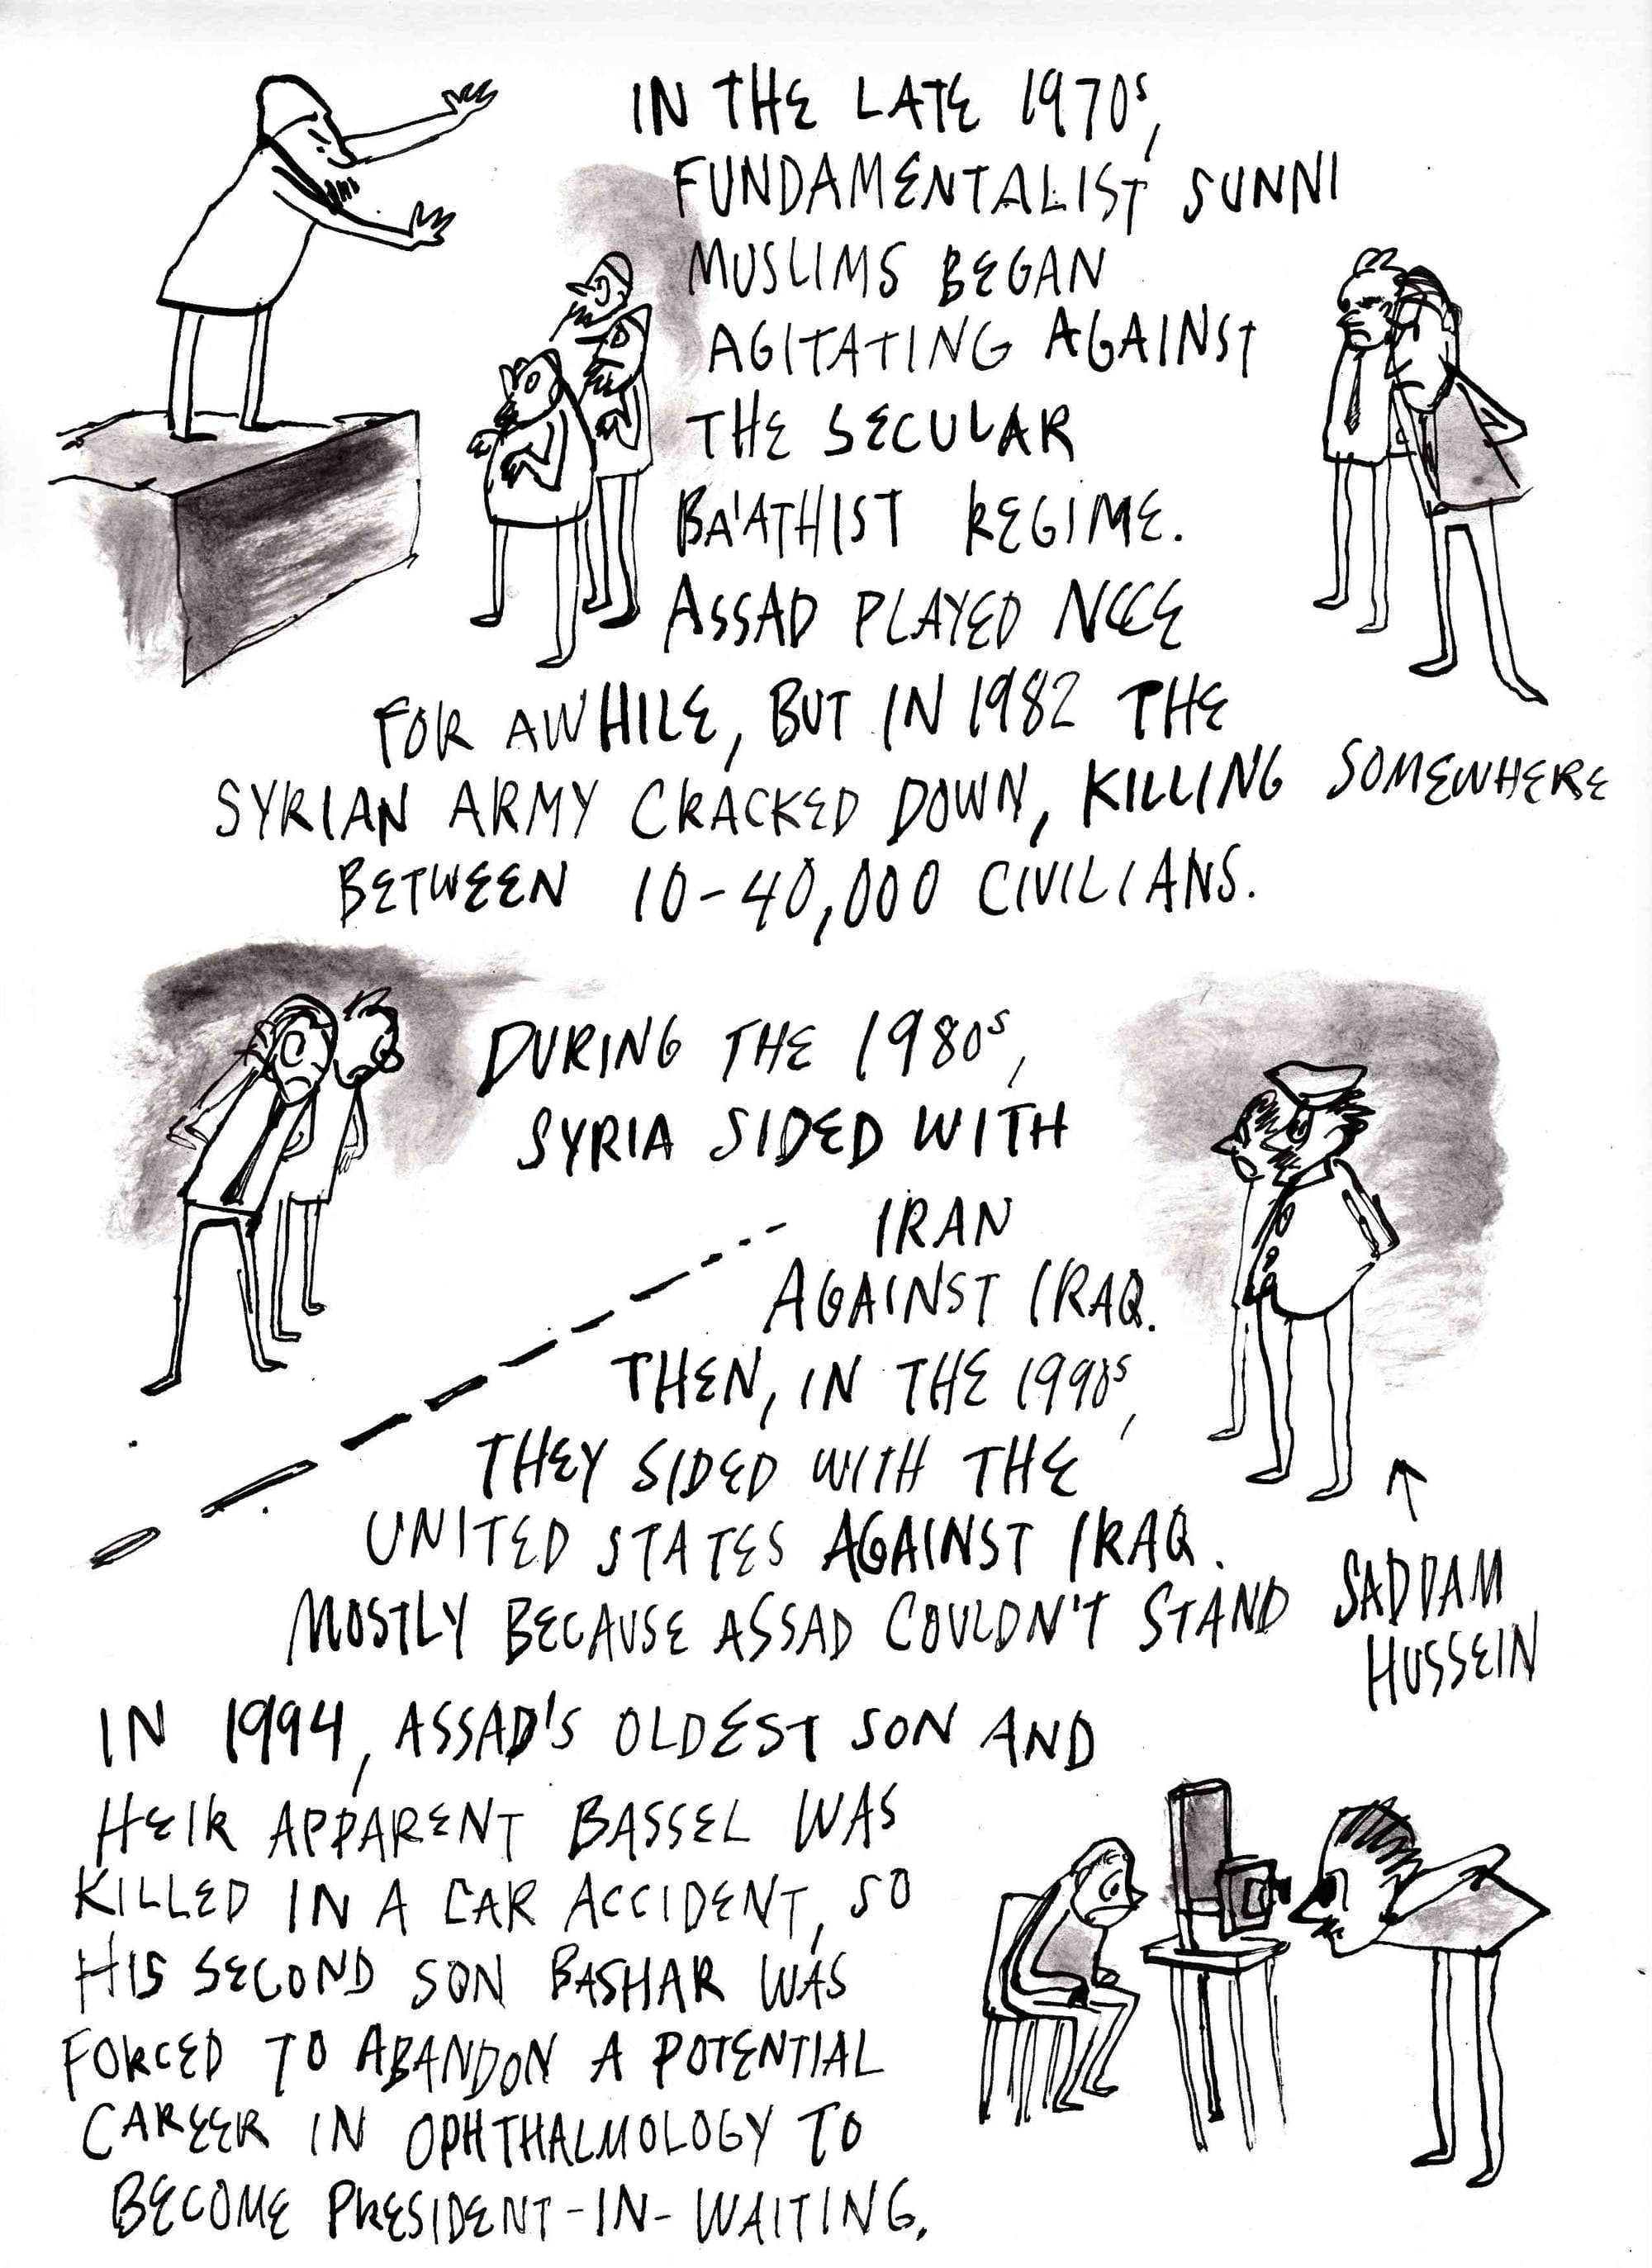 IN THE LATE 1970s,
FUNDAMENTALIST SUNNI
MUSLIMS BEGAN
AGITATING AGAINST
THE SECULAR
BA'ATHIST REGIME.
ASSAD PLAYED NICE
FOR AWHILE, BUT IN 1982 THE
SYRIAN ARMY CRACKED DOWN, KILLING SOMEWHERE
BETWEEN 10-40,000 CIVILIANS.
DURING THE 1980s,
SYRIA SIDED WITH
IRAN
AGAINST IRAQ.
THEN, IN THE 1990s,
THEY SIDED WITH THE
UNITED STATES AGAINST IRAQ.
MOSTLY BECAUSE ASSAD COULDN'T STAND
SADDAM
HUSSEIN
IN 1994, ASSAD'S OLDEST SON AND
HEIR APPARENT BASSEL WAS
KILLED IN A CAR ACCIDENT, SO
HIS SECOND SON BASHAR WAS
FORCED TO ABANDON A POTENTIAL
CAREER IN OPHTHALMOLOGY TO
BECOME PRESIDENT-IN-WAITING.